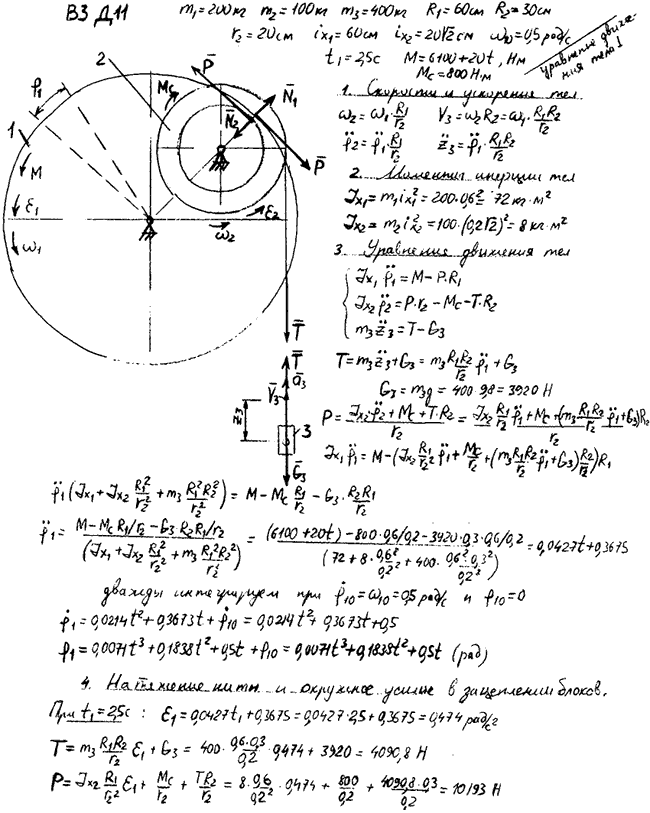 ВЗ Д11 m₁=200кг m₂=100кг m₃=400кг R₁=60см R₂=30см
r₂=20см ix₁=60см ix₂=20√2см ω₁₀=0,5рад/с
t₁=2,5с M=6100+20t, Нм
Mc=800 Н·м
уравнение движе-
ния тела 1
1. Скорости и ускорения тел
ω₂=ω₁·R₁/r₂ V₃=ω₂R₂=ω₁·R₁R₂/r₂
φ̈₂=φ̈₁·R₁/r₂ z̈₃=φ̈₁·R₁R₂/r₂
2. Моменты инерции тел
Jx₁=m₁ix₁²=200·0,6²=72 кг·м²
Jx₂=m₂ix₂²=100·(0,2√2)²=8 кг·м²
3. Уравнения движения тел
Jx₁φ̈₁=M-P·R₁
Jx₂φ̈₂=P·r₂-Mc-T·R₂
m₃z̈₃=T-G₃
T=m₃z̈₃+G₃=m₃R₁R₂/r₂ φ̈₁+G₃
G₃=m₃g=400·9,8=3920 Н
P=(Jx₂·φ̈₂+Mc+T·R₂)/r₂=(Jx₂R₁/r₂ φ̈₁+Mc+(m₃R₁R₂/r₂ φ̈₁+G₃)R₂)/r₂
Jx₁φ̈₁=M-(Jx₂R₁/r₂² φ̈₁+Mc/r₂+(m₃R₁R₂/r₂ φ̈₁+G₃)R₂/r₂)R₁
φ̈₁(Jx₁+Jx₂R₁²/r₂²+m₃R₁²R₂²/r₂²)=M-Mc R₁/r₂-G₃·R₂R₁/r₂
φ̈₁=(M-McR₁/r₂-G₃R₂R₁/r₂)/(Jx₁+Jx₂R₁²/r₂²+m₃R₁²R₂²/r₂²)=((6100+20t)-800·0,6/0,2-3920·0,3·0,6/0,2)/(72+8·0,6²/0,2²+400·0,6²·0,3²/0,2²)=0,0427t+0,3675
дважды интегрируем при φ̇₁₀=ω₁₀=0,5 рад/с и φ₁₀=0
φ̇₁=0,0214t²+0,3673t+φ̇₁₀=0,0214t²+0,3673t+0,5
φ₁=0,0071t³+0,1838t²+0,5t+φ₁₀=0,0071t³+0,1838t²+0,5t (рад)
4. Натяжение нити и окружное усилие в зацеплении блоков.
При t₁=2,5с: ε₁=0,0427t₁+0,3675=0,0427·2,5+0,3675=0,474 рад/с²
T=m₃R₁R₂/r₂ ε₁+G₃=400·0,6·0,3/0,2·0,474+3920=4090,8 Н
P=Jx₂R₁/r₂² ε₁+Mc/r₂+TR₂/r₂=8·0,6/0,2²·0,474+800/0,2+4090,8·0,3/0,2=10193 Н
2
Mc
P̄
N̄₁
N̄₂
P̄
ρ₁
1
M
ε̄₁
ω̄₁
ε̄₂
ω̄₂
T̄
T̄
ā₃
V̄₃
z₃
3
Ḡ₃